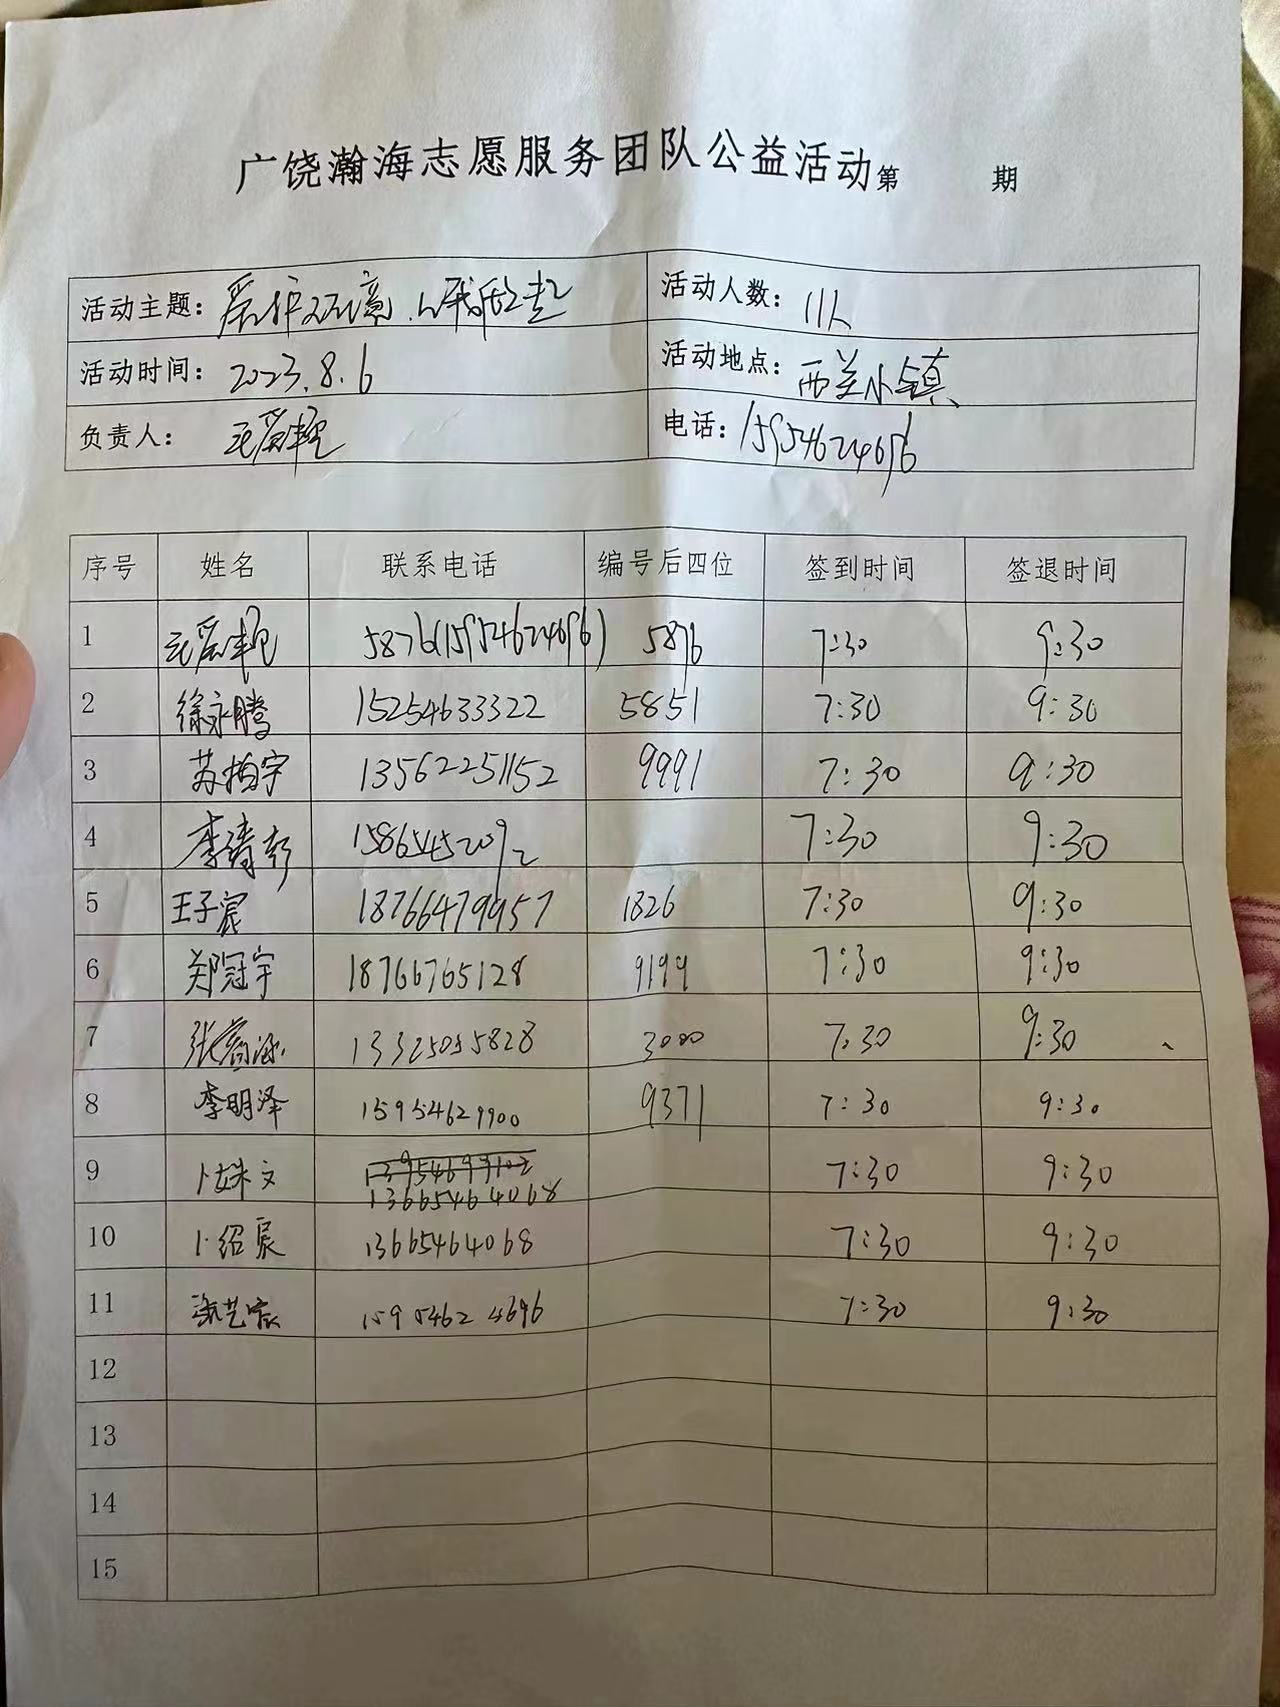 广饶瀚海志愿服务团队公益活动第 期
活动主题：爱护环境.从我做起 活动人数：11人
活动时间：2023.8.6 活动地点：西关小镇
负责人： 电话：15954624696
序号 姓名 联系电话 编号后四位 签到时间 签退时间
1 5876(15954624696) 5876 7:30 9:30
2 徐永腾 15254633322 5851 7:30 9:30
3 苏柏宇 13562251152 9991 7:30 9:30
4 李清彭 15865452092 7:30 9:30
5 王子宸 18766479957 1826 7:30 9:30
6 郑冠宇 18766765128 9199 7:30 9:30
7 13325055828 3000 7:30 9:30
8 李明泽 15954629900 9371 7:30 9:30
9 卜姝文 13954699102 7:30 9:30
13665464068
10 卜绍宸 13665464068 7:30 9:30
11 15954624696 7:30 9:30
12
13
14
15